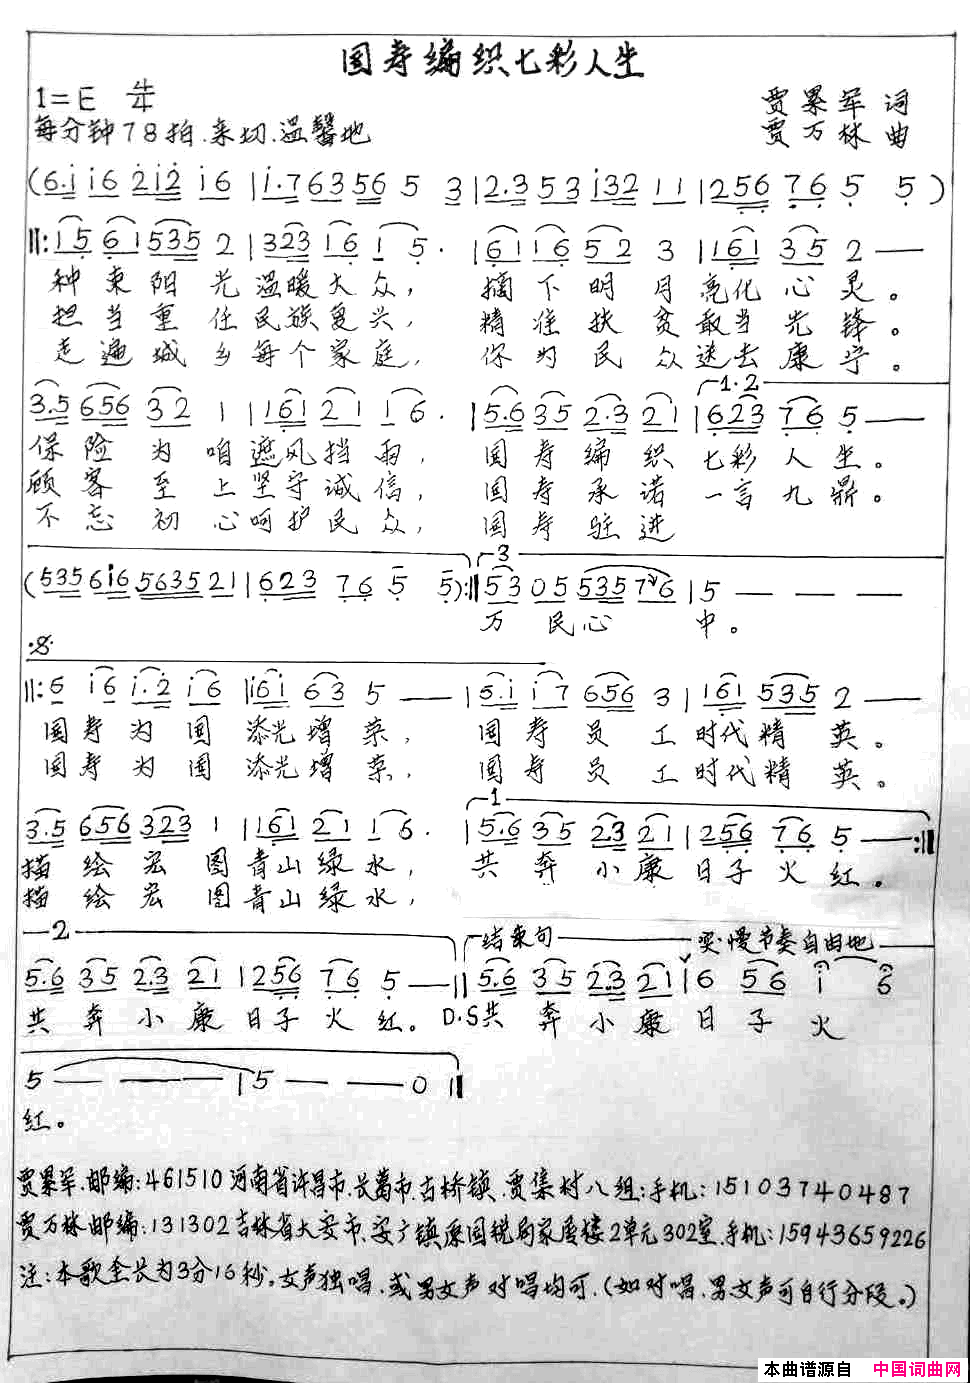 国寿编织七彩人生
1=E 4/4
贾累军 词
每分钟78拍.亲切.温馨地
贾万林 曲
(6.i i6 2i2 i6 | i.763 56 5 3 | 2.3 53 i32 11 | 256 76 5 5)
||: 15 61 535 2 | 323 16 1 5. | 61 16 52 3 | 161 35 2 ——
种束阳光温暖大众， 摘下明月亮化心灵。
担当重任民族复兴， 精准扶贫敢当先锋。
走遍城乡每个家庭， 你为民众送去康宁。
1·2
3.5 656 32 1 | 161 21 16. | 5.6 35 2.3 21 | 623 76 5 ——
保险为咱遮风挡雨， 国寿编织七彩人生。
顾客至上坚守诚信， 国寿承诺一言九鼎。
不忘初心呵护民众， 国寿驻进
3
(535 6i6 5635 21 | 623 76 5 5) :|| 53 05 535 76 | 5 — — —
万民心中。
||: 6 i6 i.2 i6 | i6i 63 5 —— | 5.i i7 656 3 | 161 535 2 ——
国寿为国添光增荣， 国寿员工时代精英。
国寿为国添光增荣， 国寿员工时代精英。
1
3.5 656 323 1 | 161 21 16. | 5.6 35 2.3 21 | 256 76 5 —— :||
描绘宏图青山绿水， 共奔小康日子火红。
描绘宏图青山绿水，
2 结束句 突.慢节奏自由地
5.6 35 2.3 21 | 256 76 5 —— || 5.6 35 2.3 21 | 6 56 i 6
共奔小康日子火红。D.S共奔小康日子火
5 — — — | 5 — — 0 ||
红。
贾累军.邮编:461510河南省许昌市.长葛市.古桥镇.贾集村八组:手机:15103740487
贾万林邮编:131302吉林省大安市.安广镇原国税局家属楼2单元302室.手机:15943659226
注:本歌全长为3分16秒。女声独唱.或男女声对唱均可.(如对唱.男女声可自行分段。)
本曲谱源自 中国词曲网